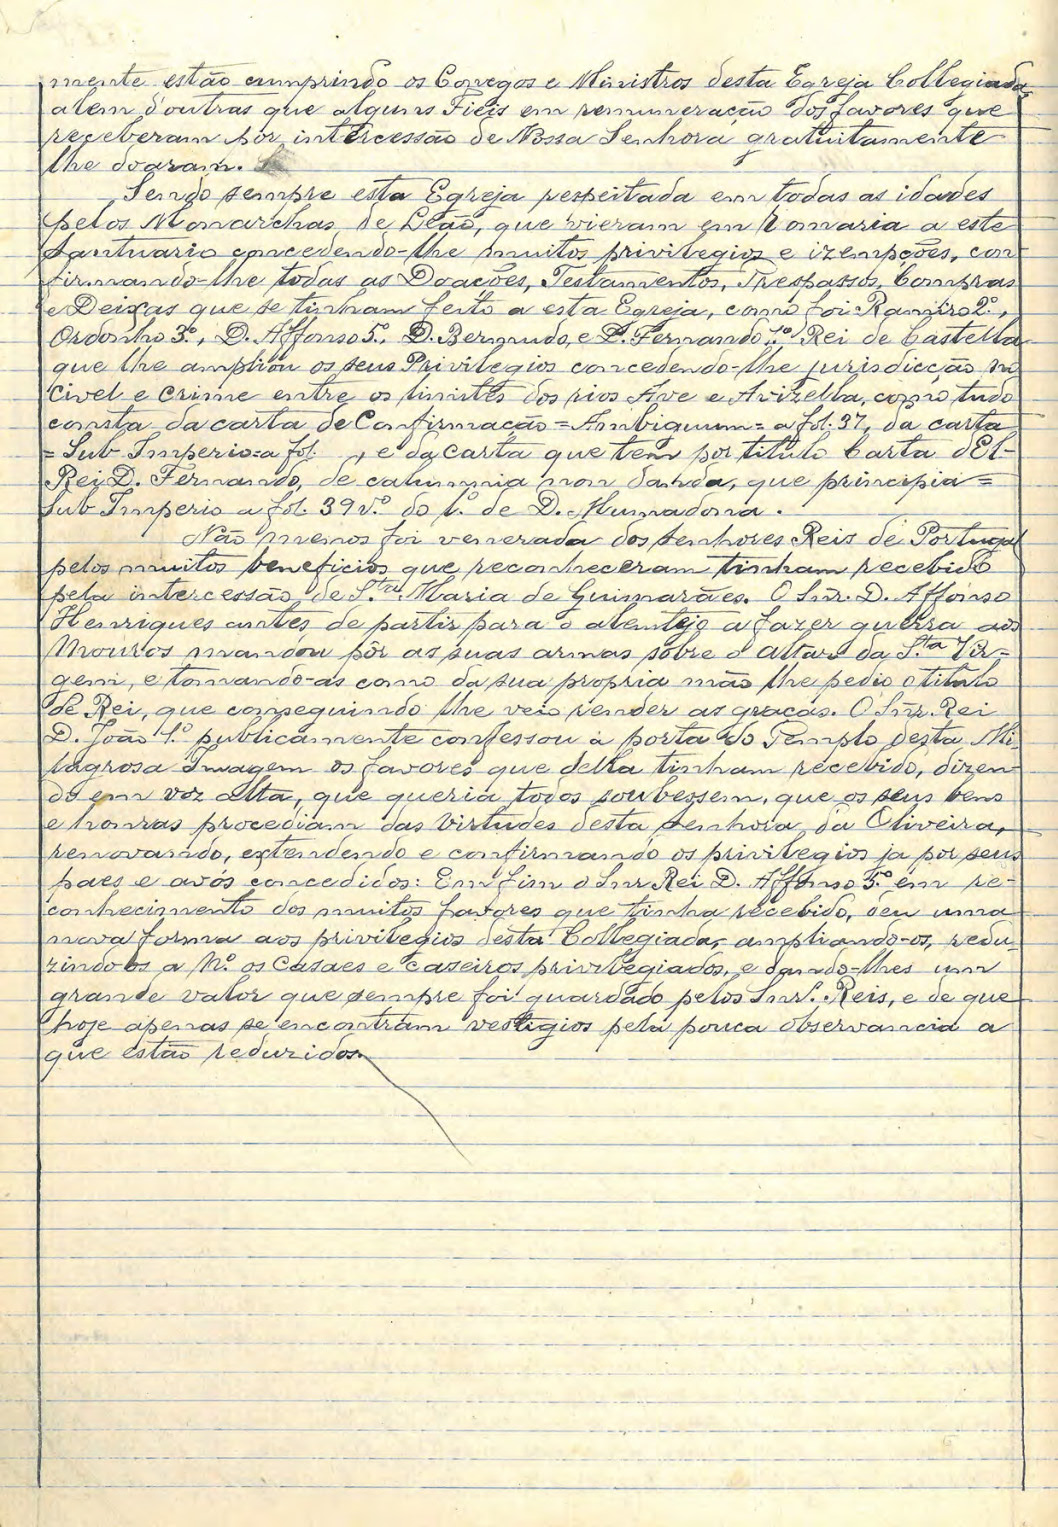 mente estão cumprindo os Conegos e Ministros desta Egreja Collegiada,
alem d'outras que alguns Fieis em remuneração dos favores que
receberam por intercessão de Nossa Senhora gratuitamente
lhe doaram.
Sendo sempre esta Egreja respeitada em todas as idades
pelos Monarchas de Leão, que vieram em romaria a este
Santuario concedendo-lhe muitos privilegios e izempções, con
firmando-lhe todas as Doações, Testamentos, Trespassos, Compras
e Deixas que se tinham feito a esta Egreja, como foi Ramiro 2º.,
Ordonho 3º., D. Affonso 5º., D. Bermudo, e D. Fernando 1º Rei de Castella
que lhe ampliou os seus Privilegios concedendo-lhe jurisdicção no
Civel e Crime entre os limites dos rios Ave e Avizella, como tudo
consta da carta de Confirmação = Ambiguum = a fol. 37, da carta
= Sub Imperio = a fol. , e da carta que tem por titulo Carta d'El-
Rei D. Fernando, de calumnia non danda, que principia =
Sub Imperio a fol. 39 vº. do l.º de D. Mumadona.
Não menos foi venerada dos senhores Reis de Portugal
pelos muitos beneficios que reconheceram tinham recebido
pela intercessão de S.ta Maria de Guimarães. O Snr. D. Affonso
Henriques antes de partir para o alemtejo a fazer guerra aos
Mouros mandou pôr as suas armas sobre o altar da S.ta Vir-
gem, e tomando-as como da sua propria mão lhe pedio o titulo
de Rei, que conseguindo lhe veio render as graças. O Snr. Rei
D. João 1.º publicamente confessou á porta do Templo desta Mi-
lagrosa Imagem os favores que della tinham recebido, dizen-
do em voz alta, que queria todos soubessem, que os seus bens
e honras procediam das Virtudes desta Senhora da Oliveira,
renovando, extendendo e confirmando os privilegios ja por seus
paes e avós concedidos: Em fim o Snr Rei D. Affonso 5º em re-
conhecimento dos muitos favores que tinha recebido, deu uma
nova forma aos privilegios desta Collegiada, ampliando-os, redu-
zindo os a Nº. os Casaes e caseiros privilegiados, e dando-lhes um
grande valor que sempre foi guardado pelos Snrs. Reis, e de que
hoje apenas se encontram vestigios pela pouca observancia a
que estão reduzidos.